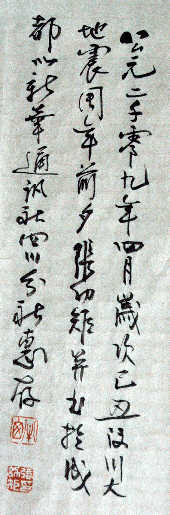 公元二千零九年四月歲次己丑汶川大
地震周年前夕張幼矩并书於成
都以新華通訊社四川分社惠存